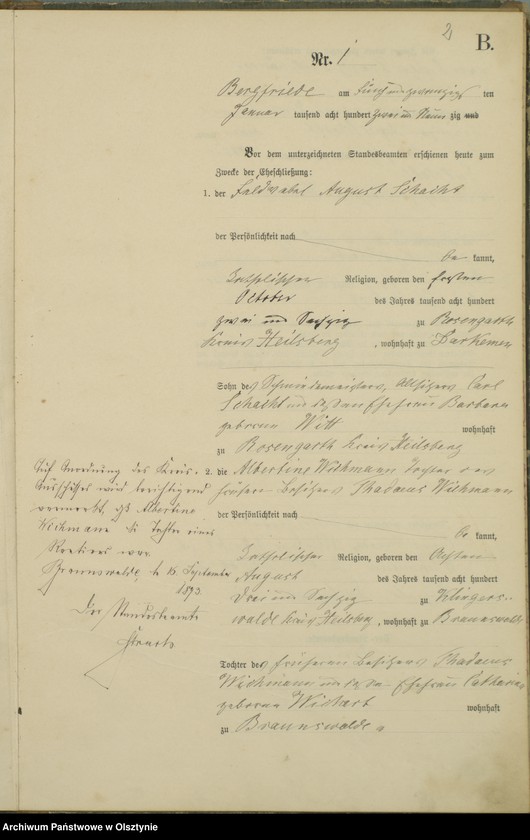 2
B.
Nr. 1
Bergfriede am fünf und zwanzigs ten
Januar tausend acht hundert zwei und Neun zig und
Vor dem unterzeichneten Standesbeamten erschienen heute zum
Zwecke der Eheschließung:
1. der Feldwebel August Schacht
der Persönlichkeit nach
be kannt,
katholischer Religion, geboren den ersten
October des Jahres tausend acht hundert
zwei und Sechzig zu Rosengarth
Kreis Heilsberg, wohnhaft zu Darkemen
Sohn des Schmiedemeisters, Altsitzers Carl
Schacht und dessen Ehefrau Barbara
geborene Witt wohnhaft
zu Rosengarth Kreis Heilsberg
2. die Albertine Wichmann Tochter des
früheren Besitzers Thadaeus Wichmann
der Persönlichkeit nach
be kannt,
katholischer Religion, geboren den Achten
August des Jahres tausend acht hundert
Drei und Sechzig zu
walde Kreis Heilsberg, wohnhaft zu Braunswalde
Tochter des früheren Besitzers Thadaeus
Wichmann und dessen Ehefrau Catharina
geborene Wichert wohnhaft
zu Braunswalde
Auf Anordnung des Kreis-
Ausschusses wird berichtigend
vermerkt, daß Albertine
Wichmann die Tochter eines
war.
Braunswalde, d. September
1893.
Der Standesbeamte
Archiwum Państwowe w Olsztynie